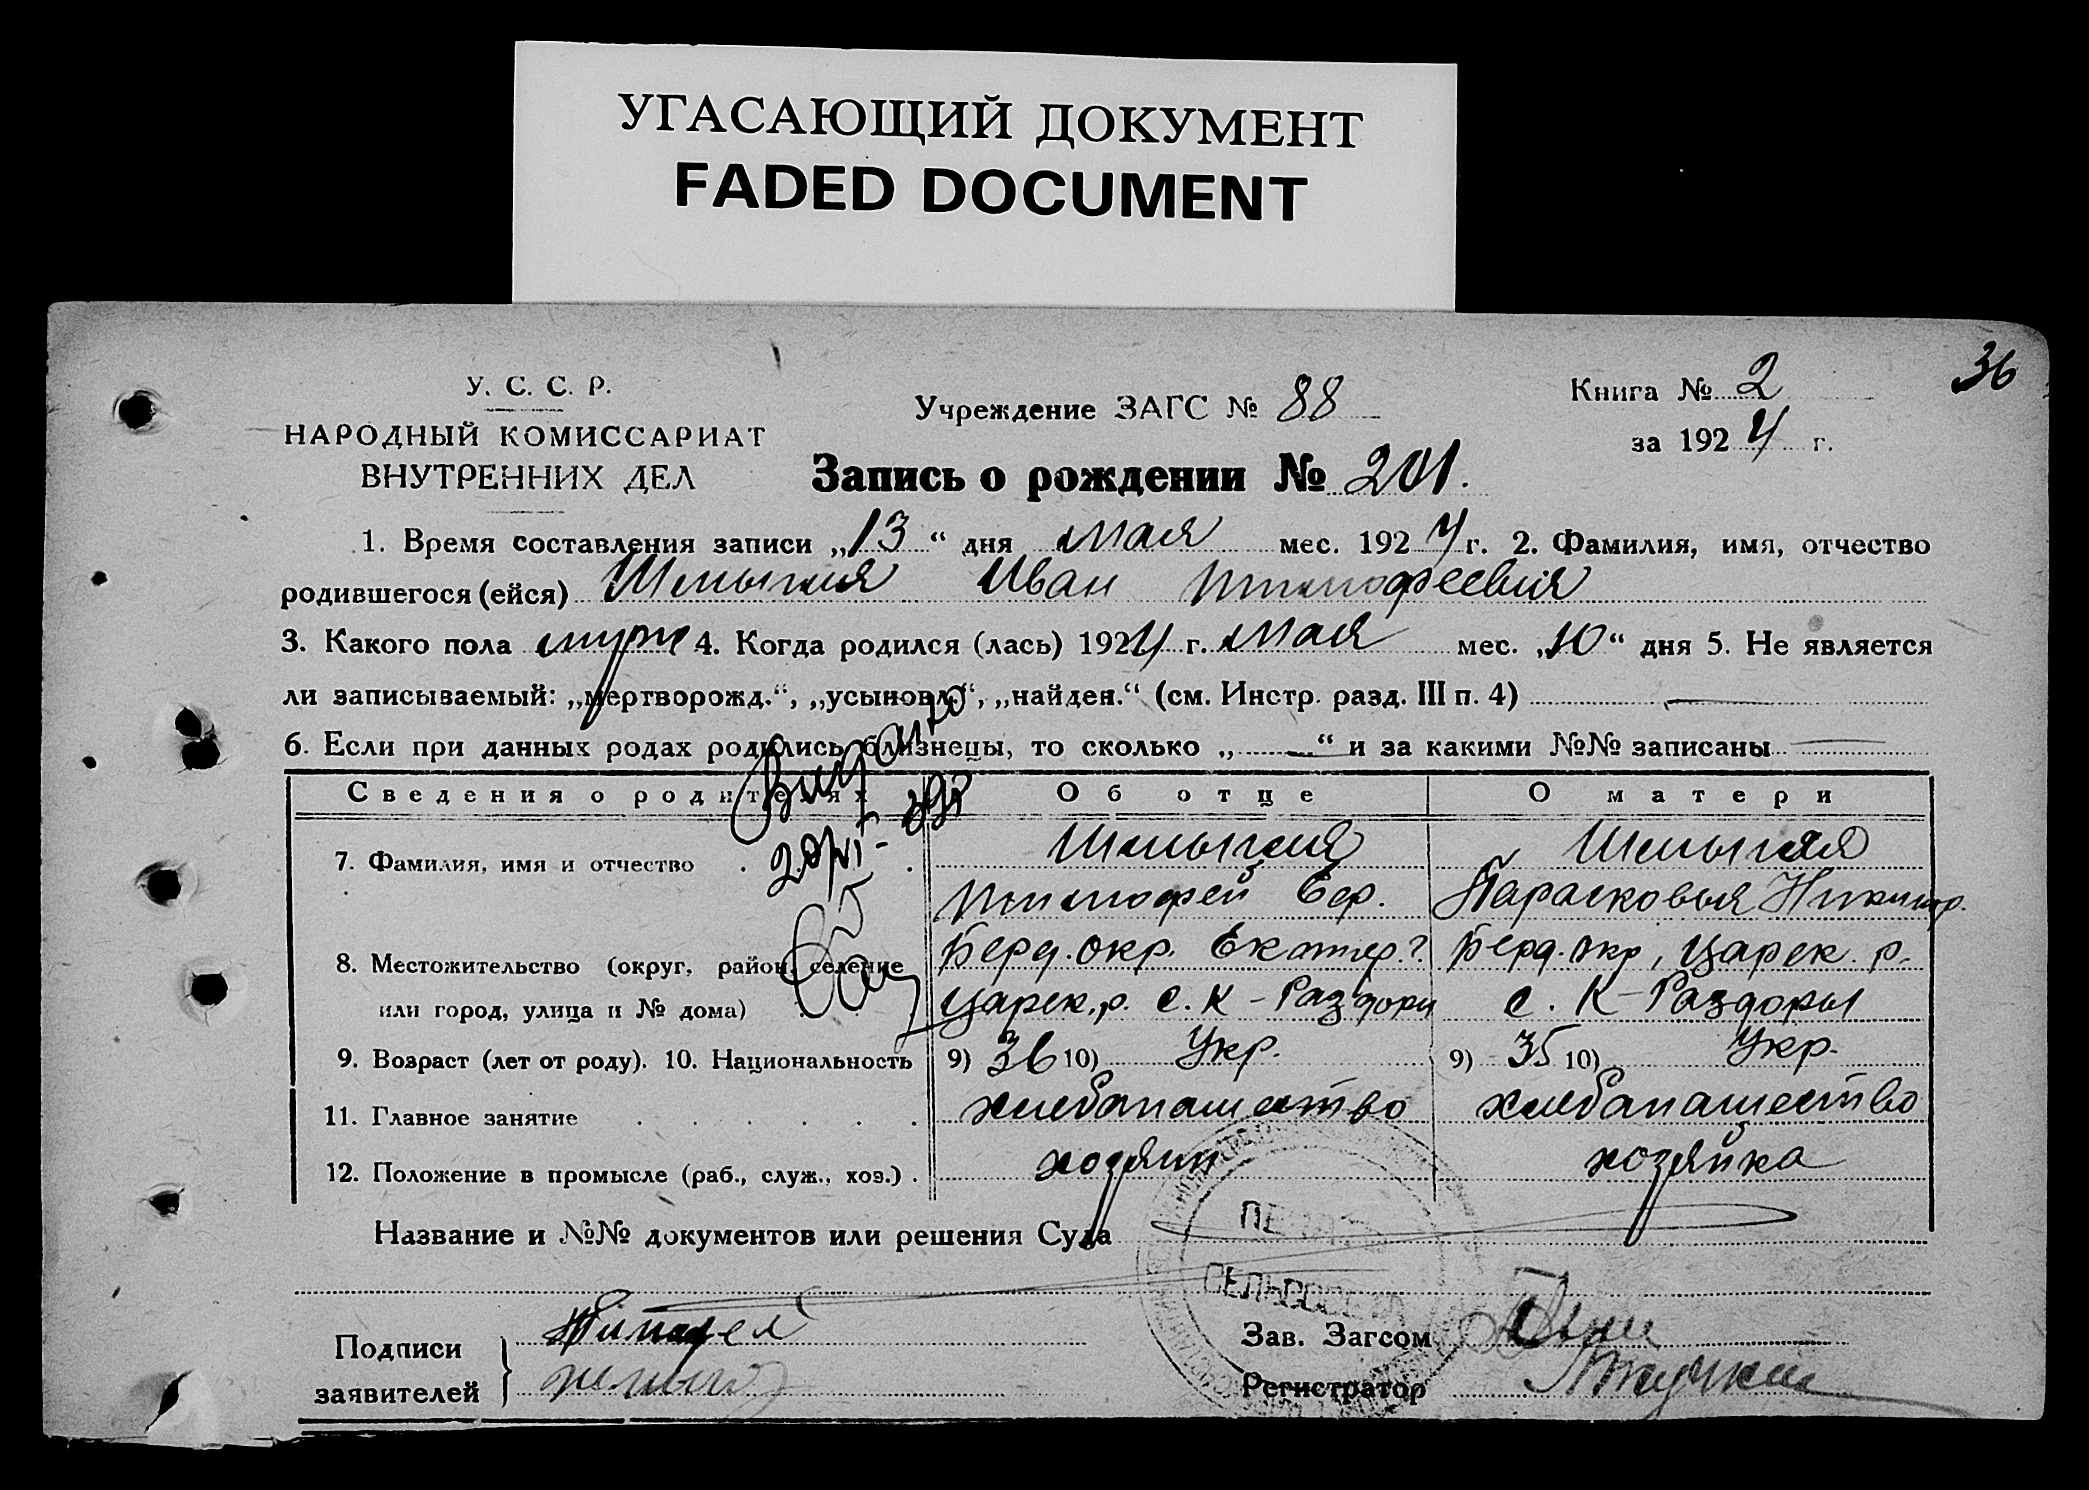 УГАСАЮЩИЙ ДОКУМЕНТ
FADED DOCUMENT
36
У. С. С. Р.
НАРОДНЫЙ КОМИССАРИАТ
ВНУТРЕННИХ ДЕЛ
Учреждение ЗАГС № 88
Книга № 2
за 1924 г.
Запись о рождении № 201.
1. Время составления записи „13“ дня мая мес. 1924 г. 2. Фамилия, имя, отчество
родившегося (ейся) Иван Тимофеевич
3. Какого пола муж 4. Когда родился (лась) 1924 г. мая мес. „10“ дня 5. Не является
ли записываемый: „мертворожд.“, „усыновл.“, „найден.“ (см. Инстр. разд. III п. 4) —
6. Если при данных родах родились близнецы, то сколько „—“ и за какими №№ записаны —
Сведения о родителях Об отце О матери
7. Фамилия, имя и отчество
Тимофей Парасковья Никиф.
8. Местожительство (округ, район, селение Берд. окр. Екатер. г. Берд. окр, Царек. р.
или город, улица и № дома) Царек. р. с. К-Раздоры с. К-Раздоры
9. Возраст (лет от роду). 10. Национальность 9) 36 10) Укр. 9) 35 10) Укр.
11. Главное занятие хлебопашество хлебопашество
12. Положение в промысле (раб., служ., хоз.) хозяин хозяйка
Название и №№ документов или решения Суда
ПЕЧАТЬ
СЕЛЬСОВЕТА
Подписи
заявителей
Зав. Загсом
Регистратор